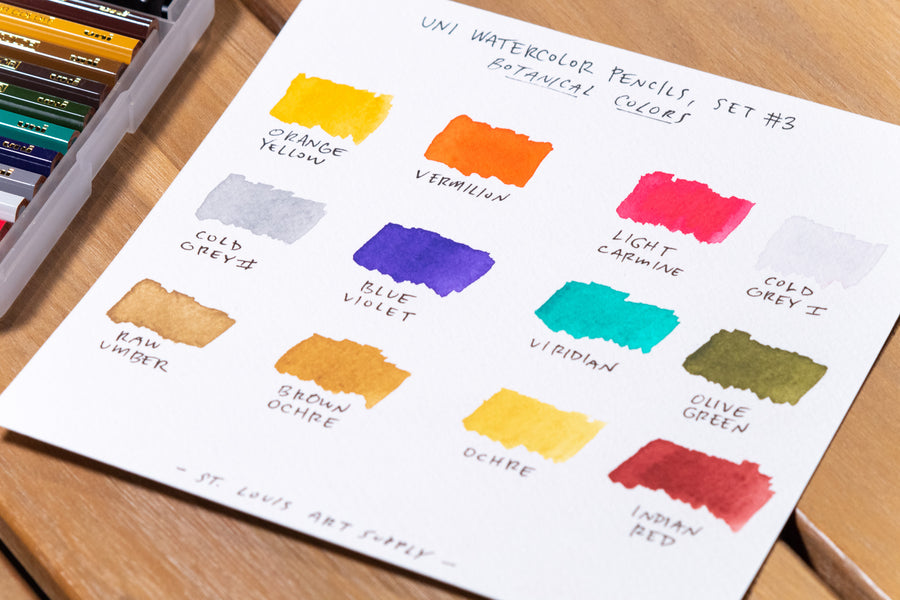 UNI WATERCOLOR PENCILS, SET #3
BOTANICAL COLORS
ORANGE
YELLOW
VERMILION
LIGHT
CARMINE
COLD
GREY I
COLD
GREY II
BLUE
VIOLET
VIRIDIAN
OLIVE
GREEN
RAW
UMBER
BROWN
OCHRE
OCHRE
INDIAN
RED
- ST. LOUIS ART SUPPLY -
uni
uni
uni
uni
uni